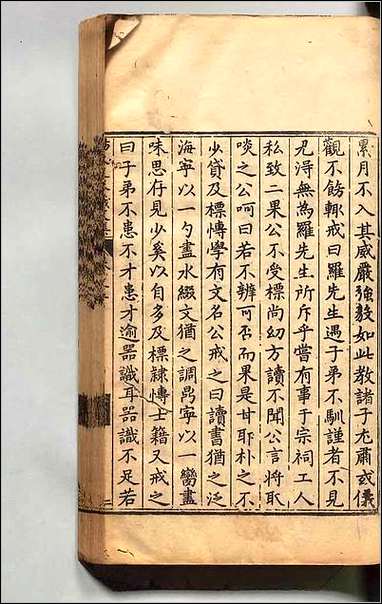 累月不入其威嚴強毅如此教諸子尤肅或儀
觀不飭輒戒曰羅先生遇子弟不馴謹者不見
凡得無為羅先生所斥乎嘗有事于宗祠工人
私致二果公不受標尚幼方讀不聞公言將取
啖之公呵曰若不辨可否而果是甘耶朴之不
少貸及標愽學有文名公戒之曰讀書猶之泛
海寧以一勺盡水綴文猶之調鼎寧以一臠盡
味思仔見少奚以自多及標隸愽士籍又戒之
曰子弟不患不才患才逾器識耳器識不足若